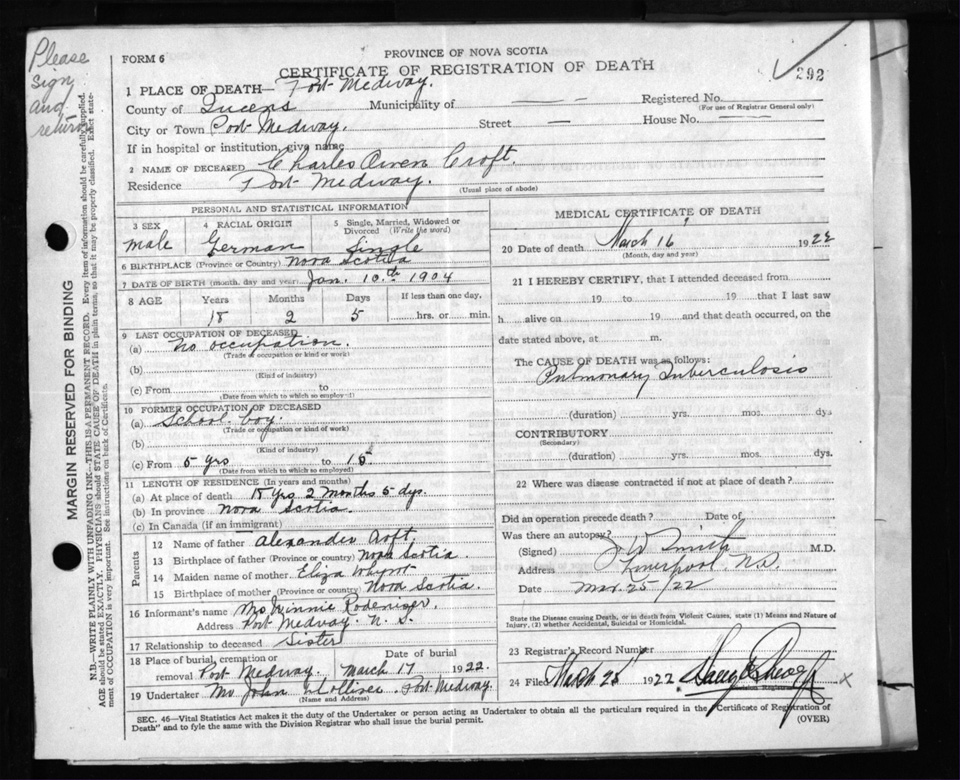 Please
sign
and
return
FORM 6
PROVINCE OF NOVA SCOTIA
CERTIFICATE OF REGISTRATION OF DEATH
292
1 PLACE OF DEATH— Port Medway.
County of Queens Municipality of — — Registered No.
(For use of Registrar General only)
City or Town Port Medway. Street — House No. —
If in hospital or institution, give name
2 NAME OF DECEASED Charles Owen Croft.
Residence Port Medway. (Usual place of abode)
PERSONAL AND STATISTICAL INFORMATION
3 SEX 4 RACIAL ORIGIN 5 Single, Married, Widowed or Divorced (Write the word)
male German Single
6 BIRTHPLACE (Province or Country) Nova Scotia
7 DATE OF BIRTH (month, day and year) Jan. 10th 1904
8 AGE Years Months Days If less than one day,
18 2 5 hrs. or min.
9 LAST OCCUPATION OF DECEASED
(a) No occupation.
(Trade or occupation or kind of work)
(b)
(Kind of industry)
(c) From to
(Date from which to which so employed)
10 FORMER OCCUPATION OF DECEASED
(a) School boy.
(Trade or occupation or kind of work)
(b)
(Kind of industry)
(c) From 5 yrs to 15
(Date from which to which so employed)
11 LENGTH OF RESIDENCE (In years and months)
(a) At place of death 18 yrs 2 months 5 dys.
(b) In province Nova Scotia.
(c) In Canada (if an immigrant)
Parents
12 Name of father Alexander Croft.
13 Birthplace of father (Province or country) Nova Scotia.
14 Maiden name of mother Eliza Whynot
15 Birthplace of mother (Province or country) Nova Scotia.
16 Informant's name Mrs Winnie Rodeniser.
Address Port Medway. N. S.
17 Relationship to deceased Sister
18 Place of burial, cremation or removal Port Medway. Date of burial March 17 1922.
19 Undertaker Mr John Port Medway.
(Name and Address)
MEDICAL CERTIFICATE OF DEATH
20 Date of death March 16 1922
(Month, day and year)
21 I HEREBY CERTIFY, that I attended deceased from
19 to 19 that I last saw
h alive on 19 and that death occurred, on the
date stated above, at m.
The CAUSE OF DEATH was as follows:
Pulmonary Tuberculosis
(duration) yrs. mos. dys
CONTRIBUTORY
(Secondary)
(duration) yrs. mos. dys.
22 Where was disease contracted if not at place of death?
Did an operation precede death? Date of
Was there an autopsy?
(Signed) J W Smith M.D.
Address Liverpool, N.S.
Date Mar. 25/22
State the Disease causing Death, or in death from Violent Causes, state (1) Means and Nature of
Injury, (2) whether Accidental, Suicidal or Homicidal.
23 Registrar's Record Number
24 Filed March 25 1922
Division Registrar
X
SEC. 46—Vital Statistics Act makes it the duty of the Undertaker or person acting as Undertaker to obtain all the particulars required in the Certificate of Registration of
Death" and to fyle the same with the Division Registrar who shall issue the burial permit.
(OVER)
MARGIN RESERVED FOR BINDING
N.B.—WRITE PLAINLY WITH UNFADING INK—THIS IS A PERMANENT RECORD. Every item of information should be carefully supplied.
AGE should be stated EXACTLY. PHYSICIANS should STATE CAUSE OF DEATH in plain terms, so that it may be properly classified. Exact state-
ment of OCCUPATION is very important. See instructions on back of Certificate.